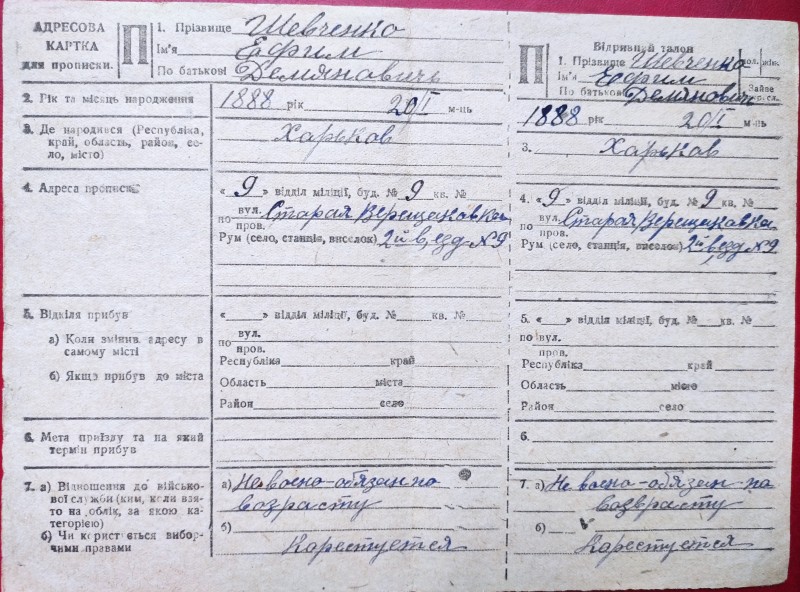 АДРЕСОВА
КАРТКА
для прописки.
П
1. Прізвище Шевченко
Ім'я Ефим
По батькові Демяновичь
2. Рік та місяць народження
1888 рік 20/I м-ць
3. Де народився (Республіка,
край, область, район, се-
ло, місто)
Харьков
4. Адреса прописки
« 9 » відділ міліції, буд. № 9 кв. №
по вул. Старая Верещаковка
пров.
Рум (село, станція, виселок) 2й везд N9
5. Відкіля прибув
а) Коли змінив адресу в
самому місті
б) Якщо прибув до міста
« » відділ міліції, буд. № кв. №
по вул.
пров.
Республіка край
Область міста
Район село
6. Мета приїзду та на який
термін прибув
7. а) Відношення до військо-
вої служби (ким, коли взя-
то на облік, за якою ка-
тегорією)
б) Чи користується вибор-
чими правами
а) Не воено-обязан по
возрасту
б)
Карестуется
П
Відривний талон
1. Прізвище Шевченко
Ім'я Ефим
По батькові Демянович
1888 рік 20/I м-ць
3. Харьков
4. « 9 » відділ міліції, буд. № 9 кв. №
по вул. Старая Верещаковка
пров.
Рум (село, станція, виселок) 2й везд N9
5. « » відділ міліції, буд. № кв. №
по вул.
пров.
Республіка край
Область місто
Район село
6.
7. а) Не воено-обязан по
возврасту
б)
Карестуется